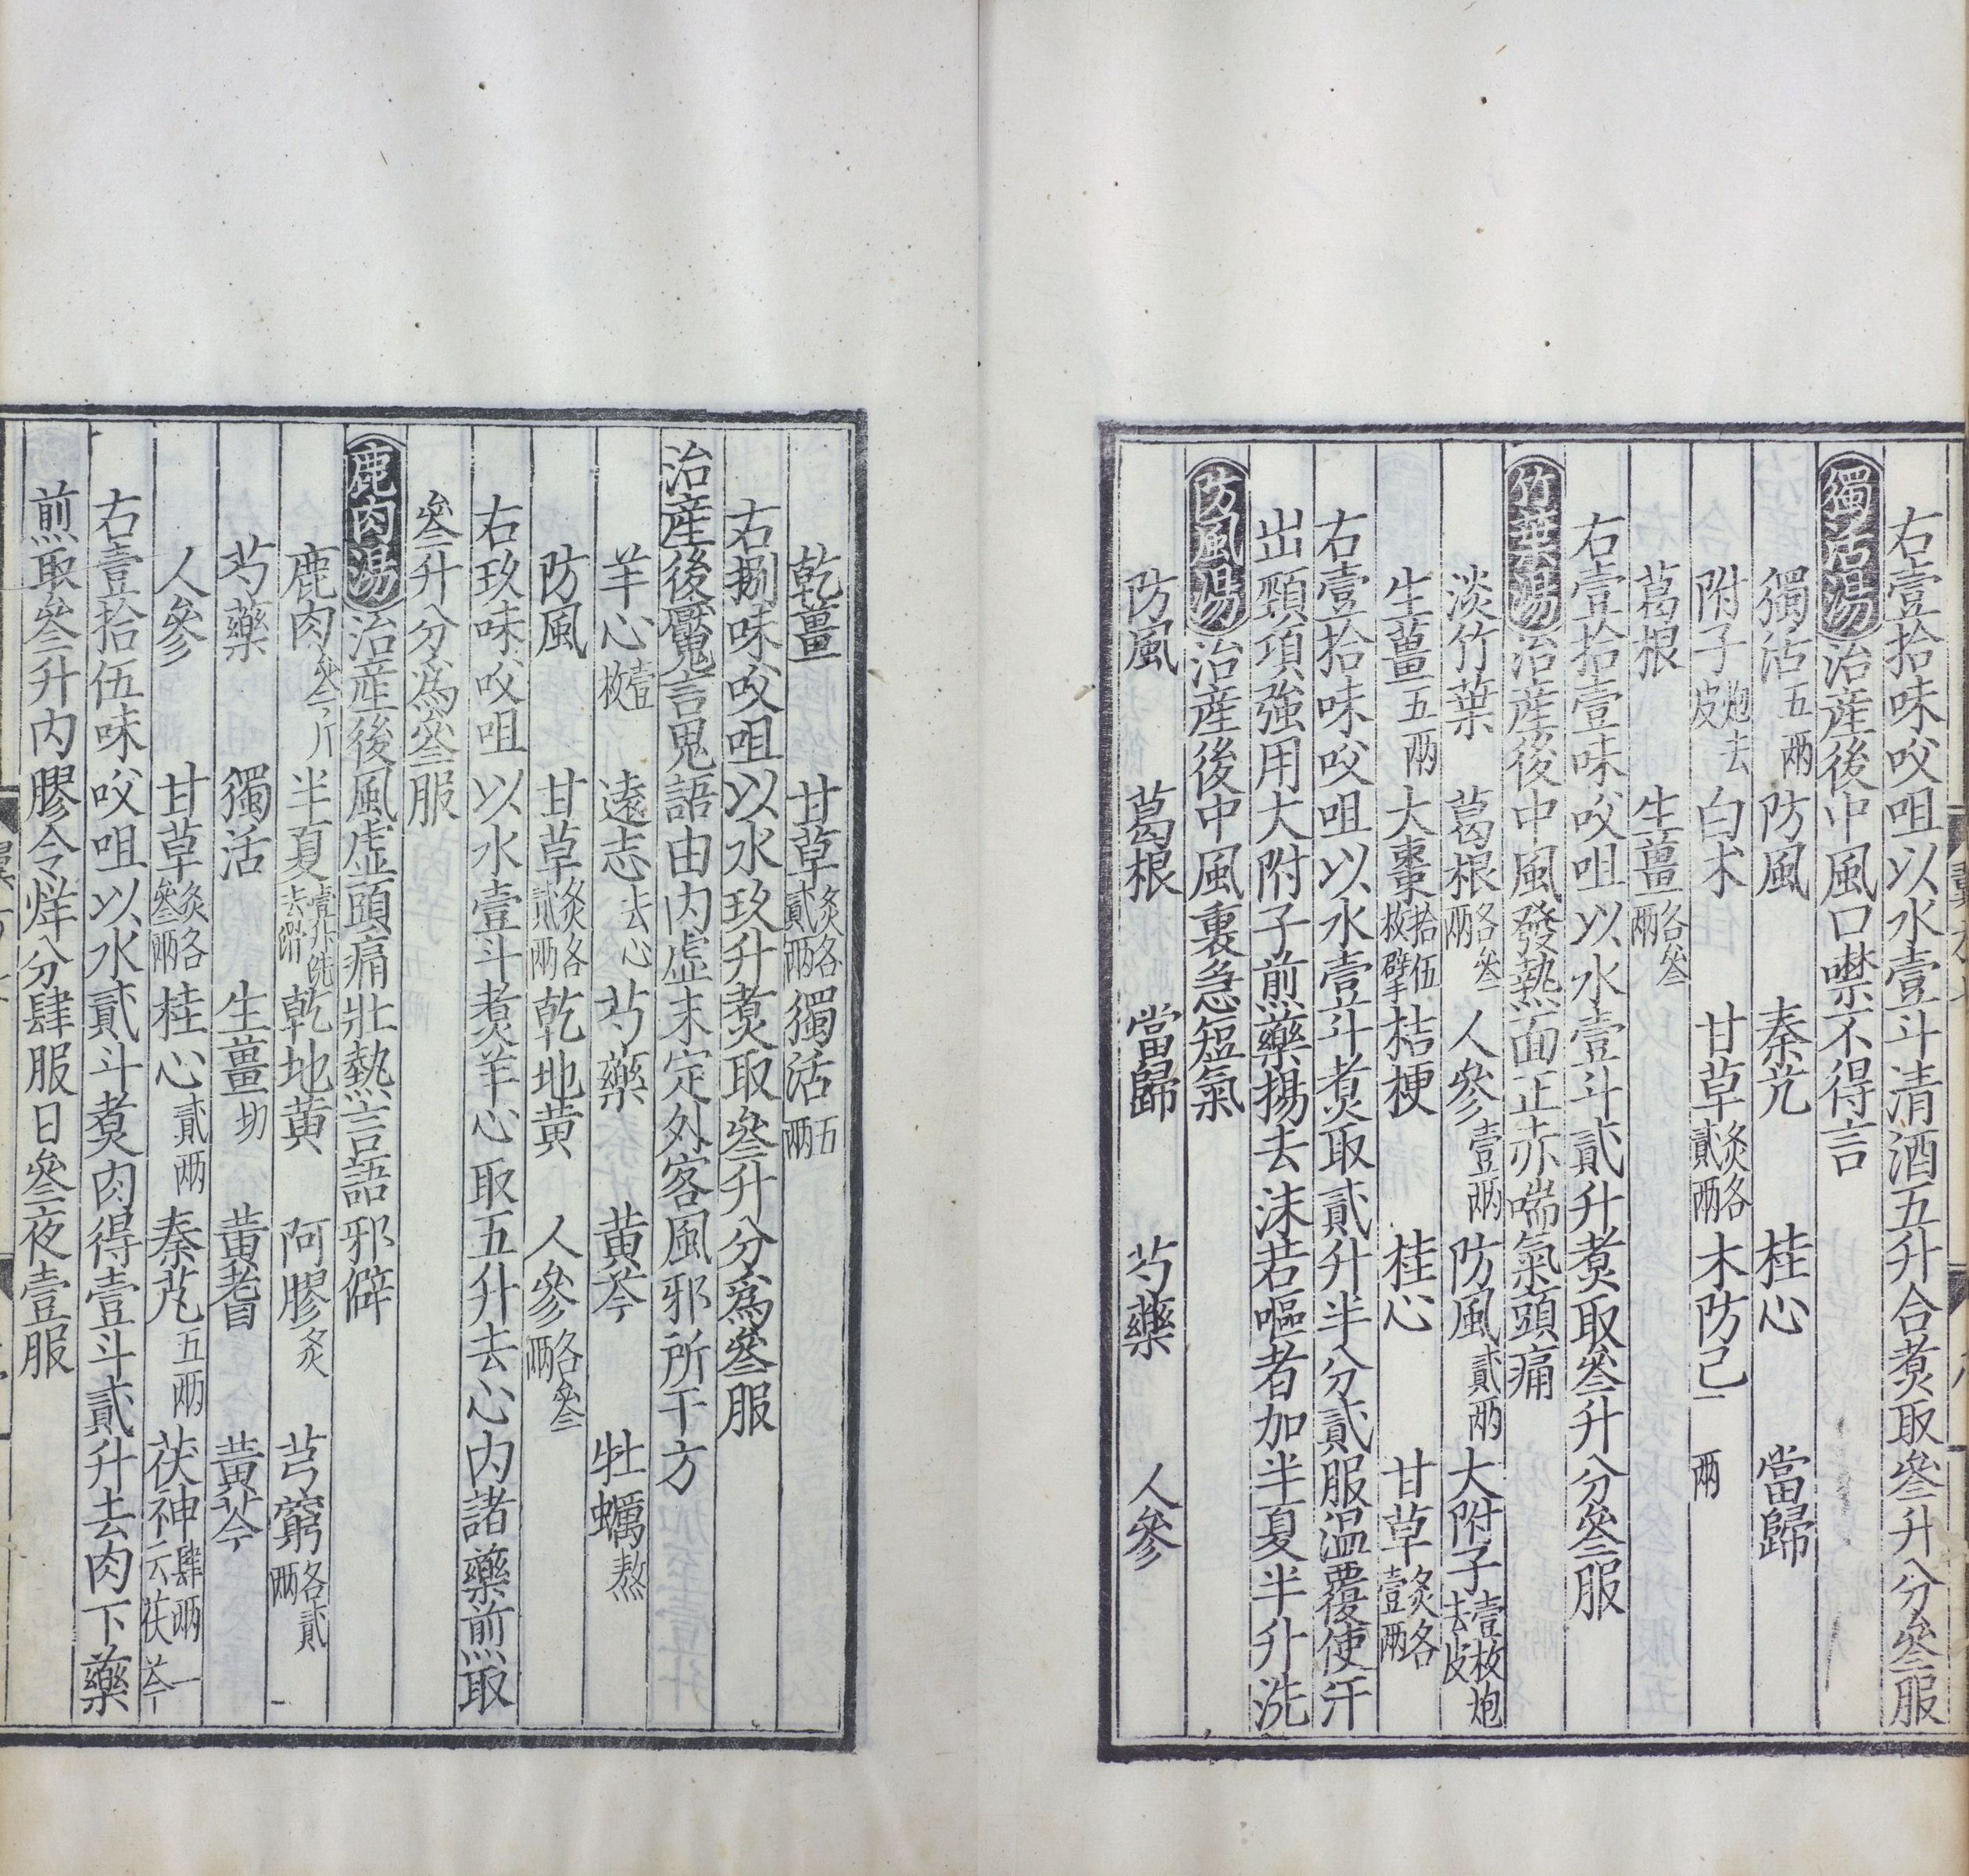 右壹拾味㕮咀以水壹斗清酒五升合煑取叁升分叁服
獨活湯治産後中風口噤不得言
獨活五兩 防風 秦艽 桂心 當歸
附子炮去皮 白术 甘草炙各貳兩 木防己一兩
葛根 生薑各叁兩
右壹拾壹味㕮咀以水壹斗貳升煑取叁升分叁服
竹葉湯治産後中風發熱面正赤喘氣頭痛
淡竹葉 葛根各叁兩 人參壹兩 防風貳兩 大附子壹枚炮去皮
生薑五兩 大棗拾伍枚擘 桔梗 桂心 甘草炙各壹兩
右壹拾味㕮咀以水壹斗煑取貳升半分貳服温覆使汗
出頸項強用大附子煎藥揚去沫若嘔者加半夏半升洗
防風湯治産後中風裏急短氣
防風 葛根 當歸 芍藥 人參
乾薑 甘草炙各貳兩 獨活五兩
右捌味㕮咀以水玖升煑取叁升分爲叁服
治産後魘言鬼語由内虚未定外客風邪所干方
羊心壹枚 遠志去心 芍藥 黄芩 牡蠣熬
防風 甘草炙各貳兩 乾地黄 人參各叁兩
右玖味㕮咀以水壹斗煑羊心取五升去心内諸藥煎取
叁升分爲叁服
鹿肉湯治産後風虚頭痛壯熱言語邪僻
鹿肉叁斤 半夏壹升洗去滑 乾地黄 阿膠炙 芎藭各貳兩
芍藥 獨活 生薑切 黄耆 黄芩
人參 甘草炙各叁兩 桂心貳兩 秦艽五兩 茯神肆兩一云茯苓
右壹拾伍味㕮咀以水貳斗煑肉得壹斗貳升去肉下藥
煎取叁升内膠令烊分肆服日叁夜壹服